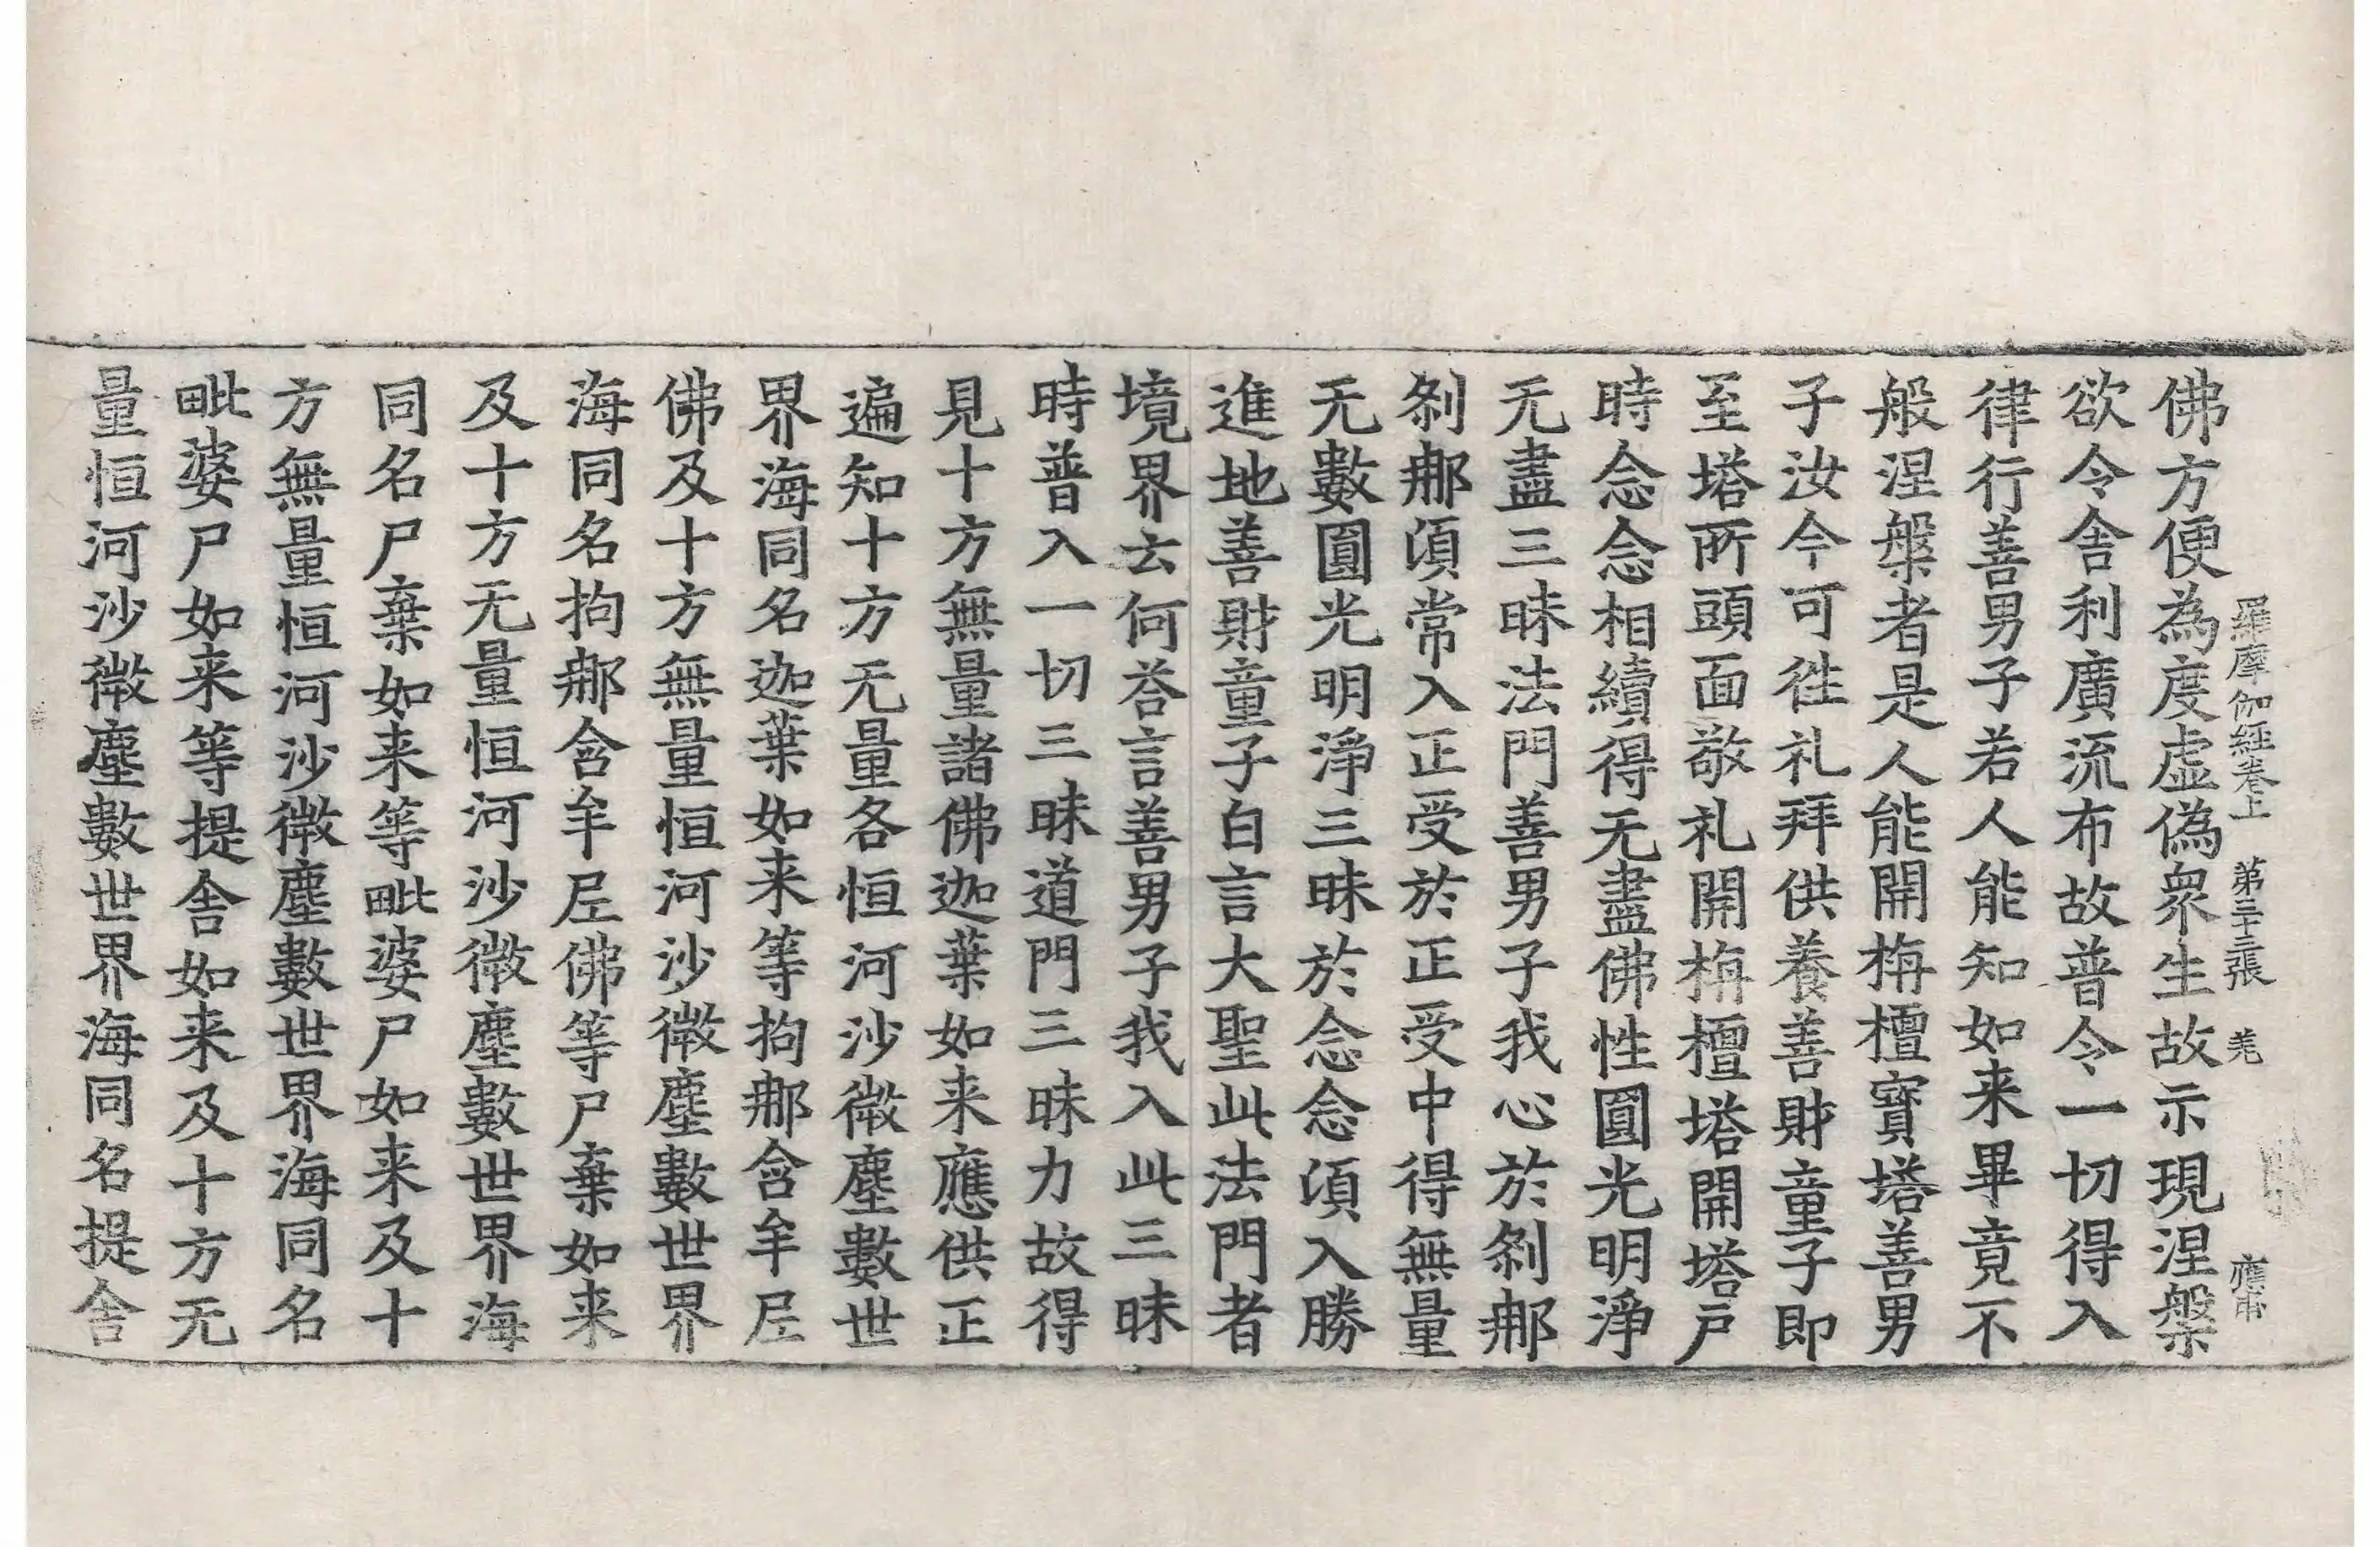 佛方便為度虛偽眾生故示現涅槃
羅摩伽經卷上 第三十二張 羌
欲令舍利廣流布故普令一切得入
律行善男子若人能知如来畢竟不
般涅槃者是人能開栴檀寶塔善男
子汝今可往礼拜供養善財童子即
至塔所頭面敬礼開栴檀塔開塔戶
時念念相續得无盡佛性圓光明淨
无盡三昧法門善男子我心於刹那
刹那湏常入正受於正受中得無量
无數圓光明淨三昧於念念湏入勝
進地善財童子白言大聖此法門者
境界云何荅言善男子我入此三昧
時普入一切三昧道門三昧力故得
見十方無量諸佛迦葉如来應供正
遍知十方无量各恒河沙微塵數世
界海同名迦葉如来等拘那含牟尼
佛及十方無量恒河沙微塵數世界
海同名拘那含牟尼佛等尸棄如来
及十方无量恒河沙微塵數世界海
同名尸棄如来等毗婆尸如来及十
方無量恒河沙微塵數世界海同名
毗婆尸如来等提舍如来及十方无
量恒河沙微塵數世界海同名提舍